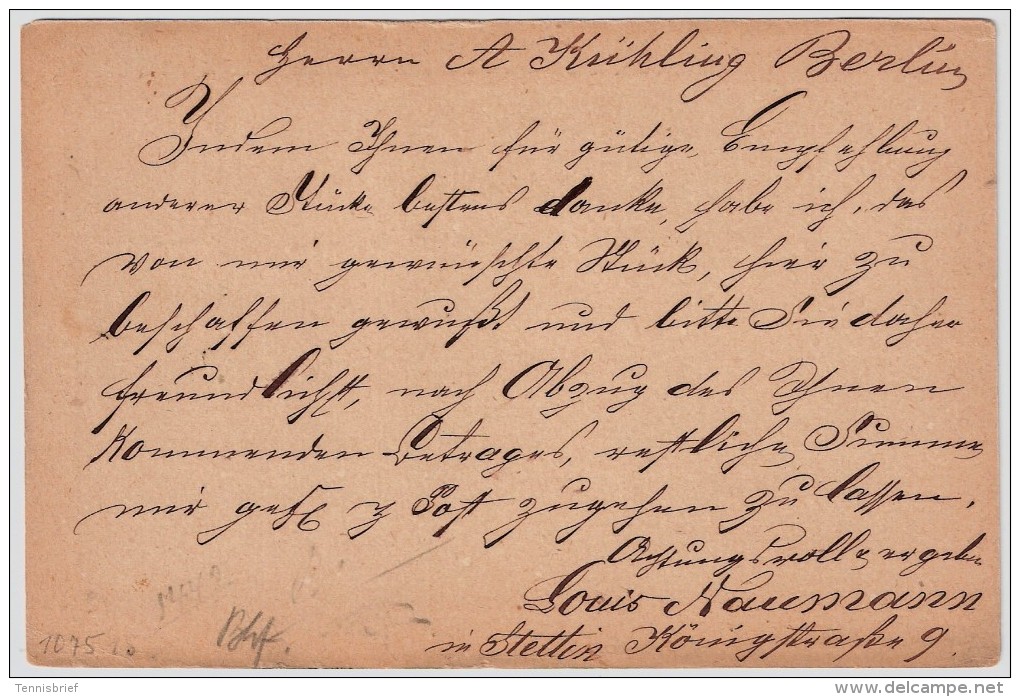 Herrn A Kühling Berlin
Indem Ihnen für gütige Empfehlung
anderer Stücke bestens danke, habe ich, das
von mir gewünschte Stück, hier zu
beschaffen gewußt und bitte Sie daher
freundlichst, nach Abzug des Ihnen
kommenden Betrages, restliche Summe
mir gefl p Post zugehen zu lassen.
Achtungsvoll ergeben
Louis Naumann
in Stettin Königstraße 9.
Bhf.
1075
Tennisbrief
delcampe.net